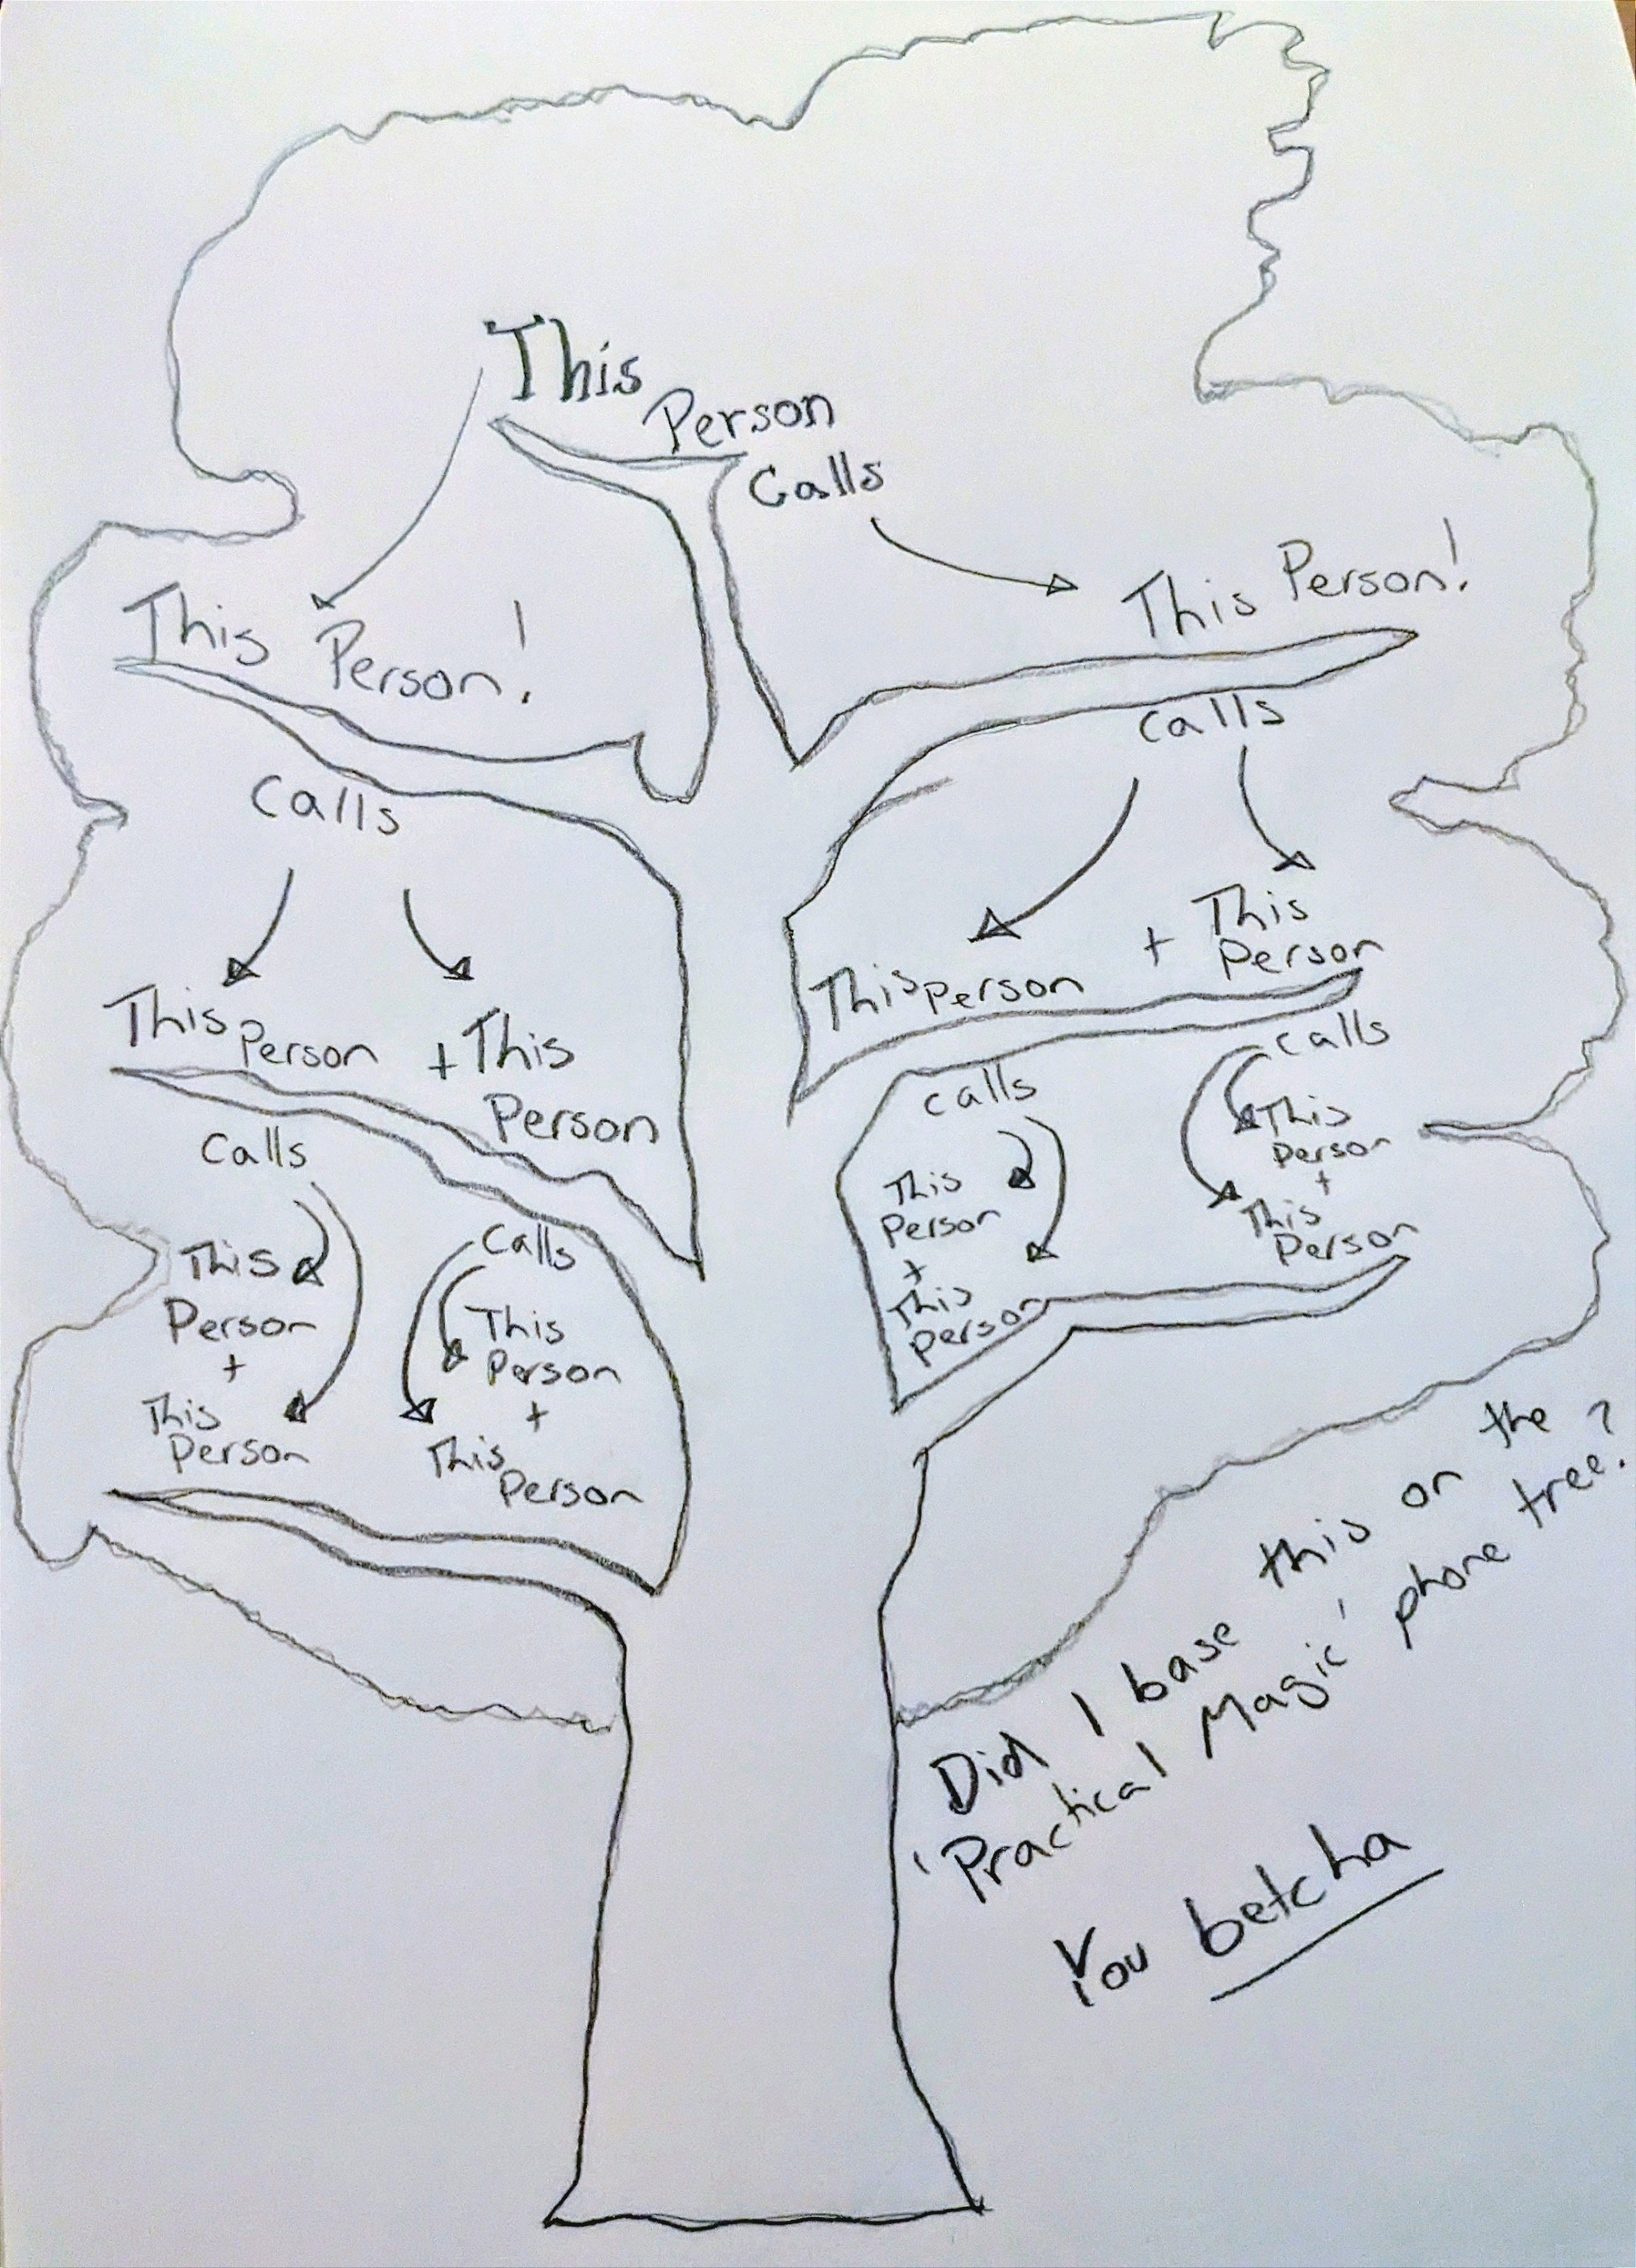 This
Person
Calls
This Person!
This Person!
calls
Calls
This Person
+ This
Person
This Person
+ This
Person
Calls
This
Person
+
This
Person
Calls
This
Person
+
This
Person
calls
This
Person
+
This
Person
calls
This
Person
+
This
Person
Did I base this on the
'Practical Magic' phone tree?
You betcha